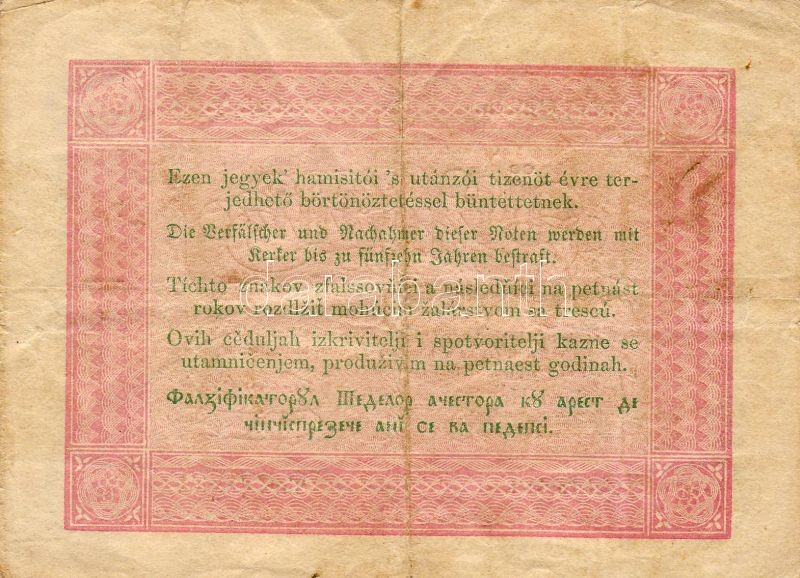 Ezen jegyek' hamisitói 's utánzói tizenöt évre ter-
jedhető börtönöztetéssel büntettetnek.
Die Verfälscher und Nachahmer dieser Noten werden mit
Kerker bis zu fünfzehn Jahren bestraft.
Tíchto znakov zfalssovňíci a následňíci na petnást
rokov rozdlžiť mohúcím žalárstvom sa trescú.
Ovih cĕduljah izkrivitelji i spotvoritelji kazne se
utamničenjem, produživim na petnaest godinah.
Фалзіфікаторꙋл Шеделор ачестора кꙋ арест де
чінчіспрезече ані се ва педепсі.
darabanth